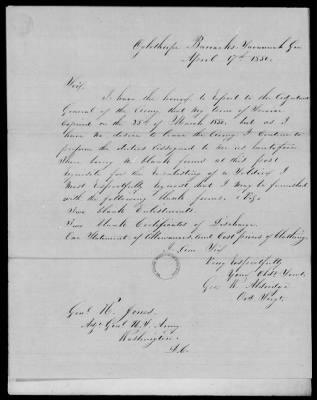 Oglethorpe Barracks, Savannah Geo
April 17th 1850.
Sir,
I have the honor to report to the Adjutant
General of the Army that my term of Service
expired on the 25th of March 1850, but as I
have no desire to leave the Army I continue to
perform the duties assigned to me as heretofore
There being no blank forms at this post
requisite for the reenlisting of a Soldier I
most respectfully request that I may be furnished
with the following blank forms. Viz.
Two blank Enlistments.
Two blank Certificates of Discharge.
One Statement of Allowances, and Cost prices of Clothing.
I am Sir
Very respectfully
Your Obdt Servt.
Geo W.
Ord Sergt.
Genl R. Jones.
Adjt Genl U.S. Army
Washington.
D.C.